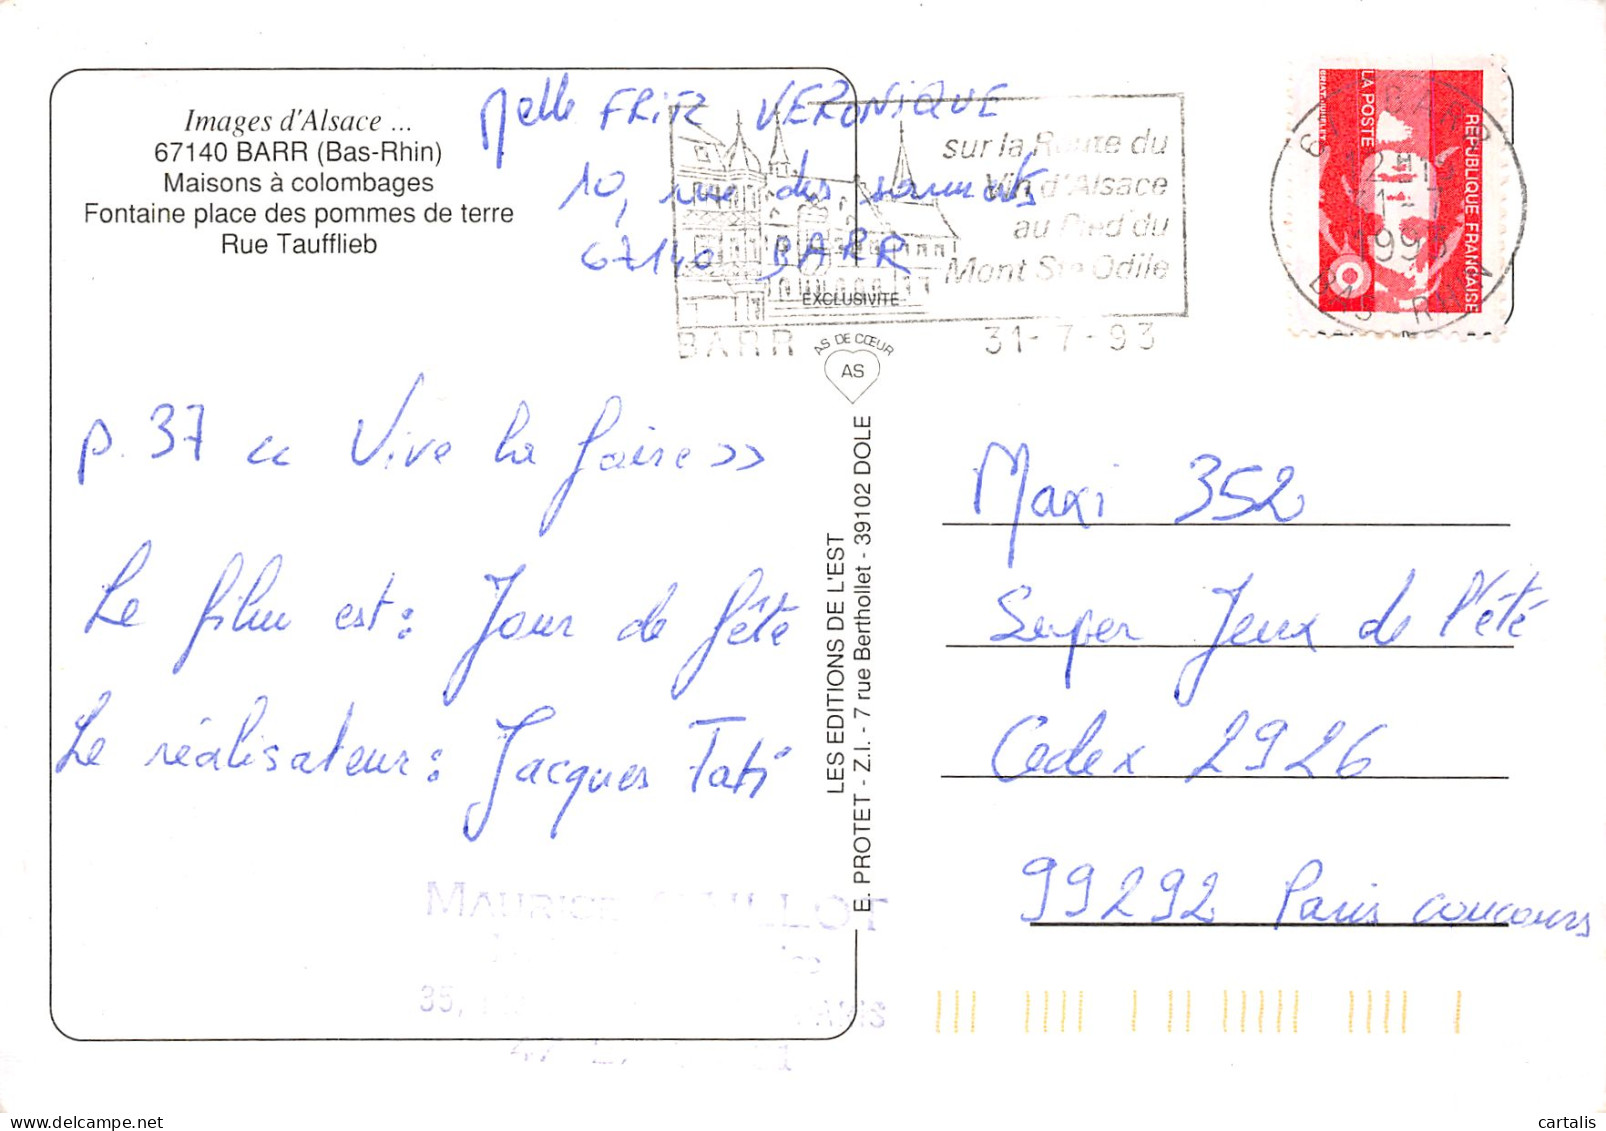 Images d'Alsace ...
67140 BARR (Bas-Rhin)
Maisons à colombages
Fontaine place des pommes de terre
Rue Taufflieb
Melle FRITZ VERONIQUE
10, rue des sarments
67140 BARR
sur la Route du
Vin d'Alsace
au Pied du
Mont Ste Odile
BARR 31-7-93
REPUBLIQUE FRANÇAISE
LA POSTE
BRIAT-JUMELET
67 BARR
1993
BAS RHIN
EXCLUSIVITE
AS DE CŒUR
AS
p. 37 << Vive la foire >>
Le film est : Jour de fête
Le réalisateur : Jacques Tati
LES EDITIONS DE L'EST
E. PROTET - Z.I. - 7 rue Berthollet - 39102 DOLE
Maxi 352
Super Jeux de l'été
Cedex 2926
99292 Paris concours
MAURICE
35,
cartalis